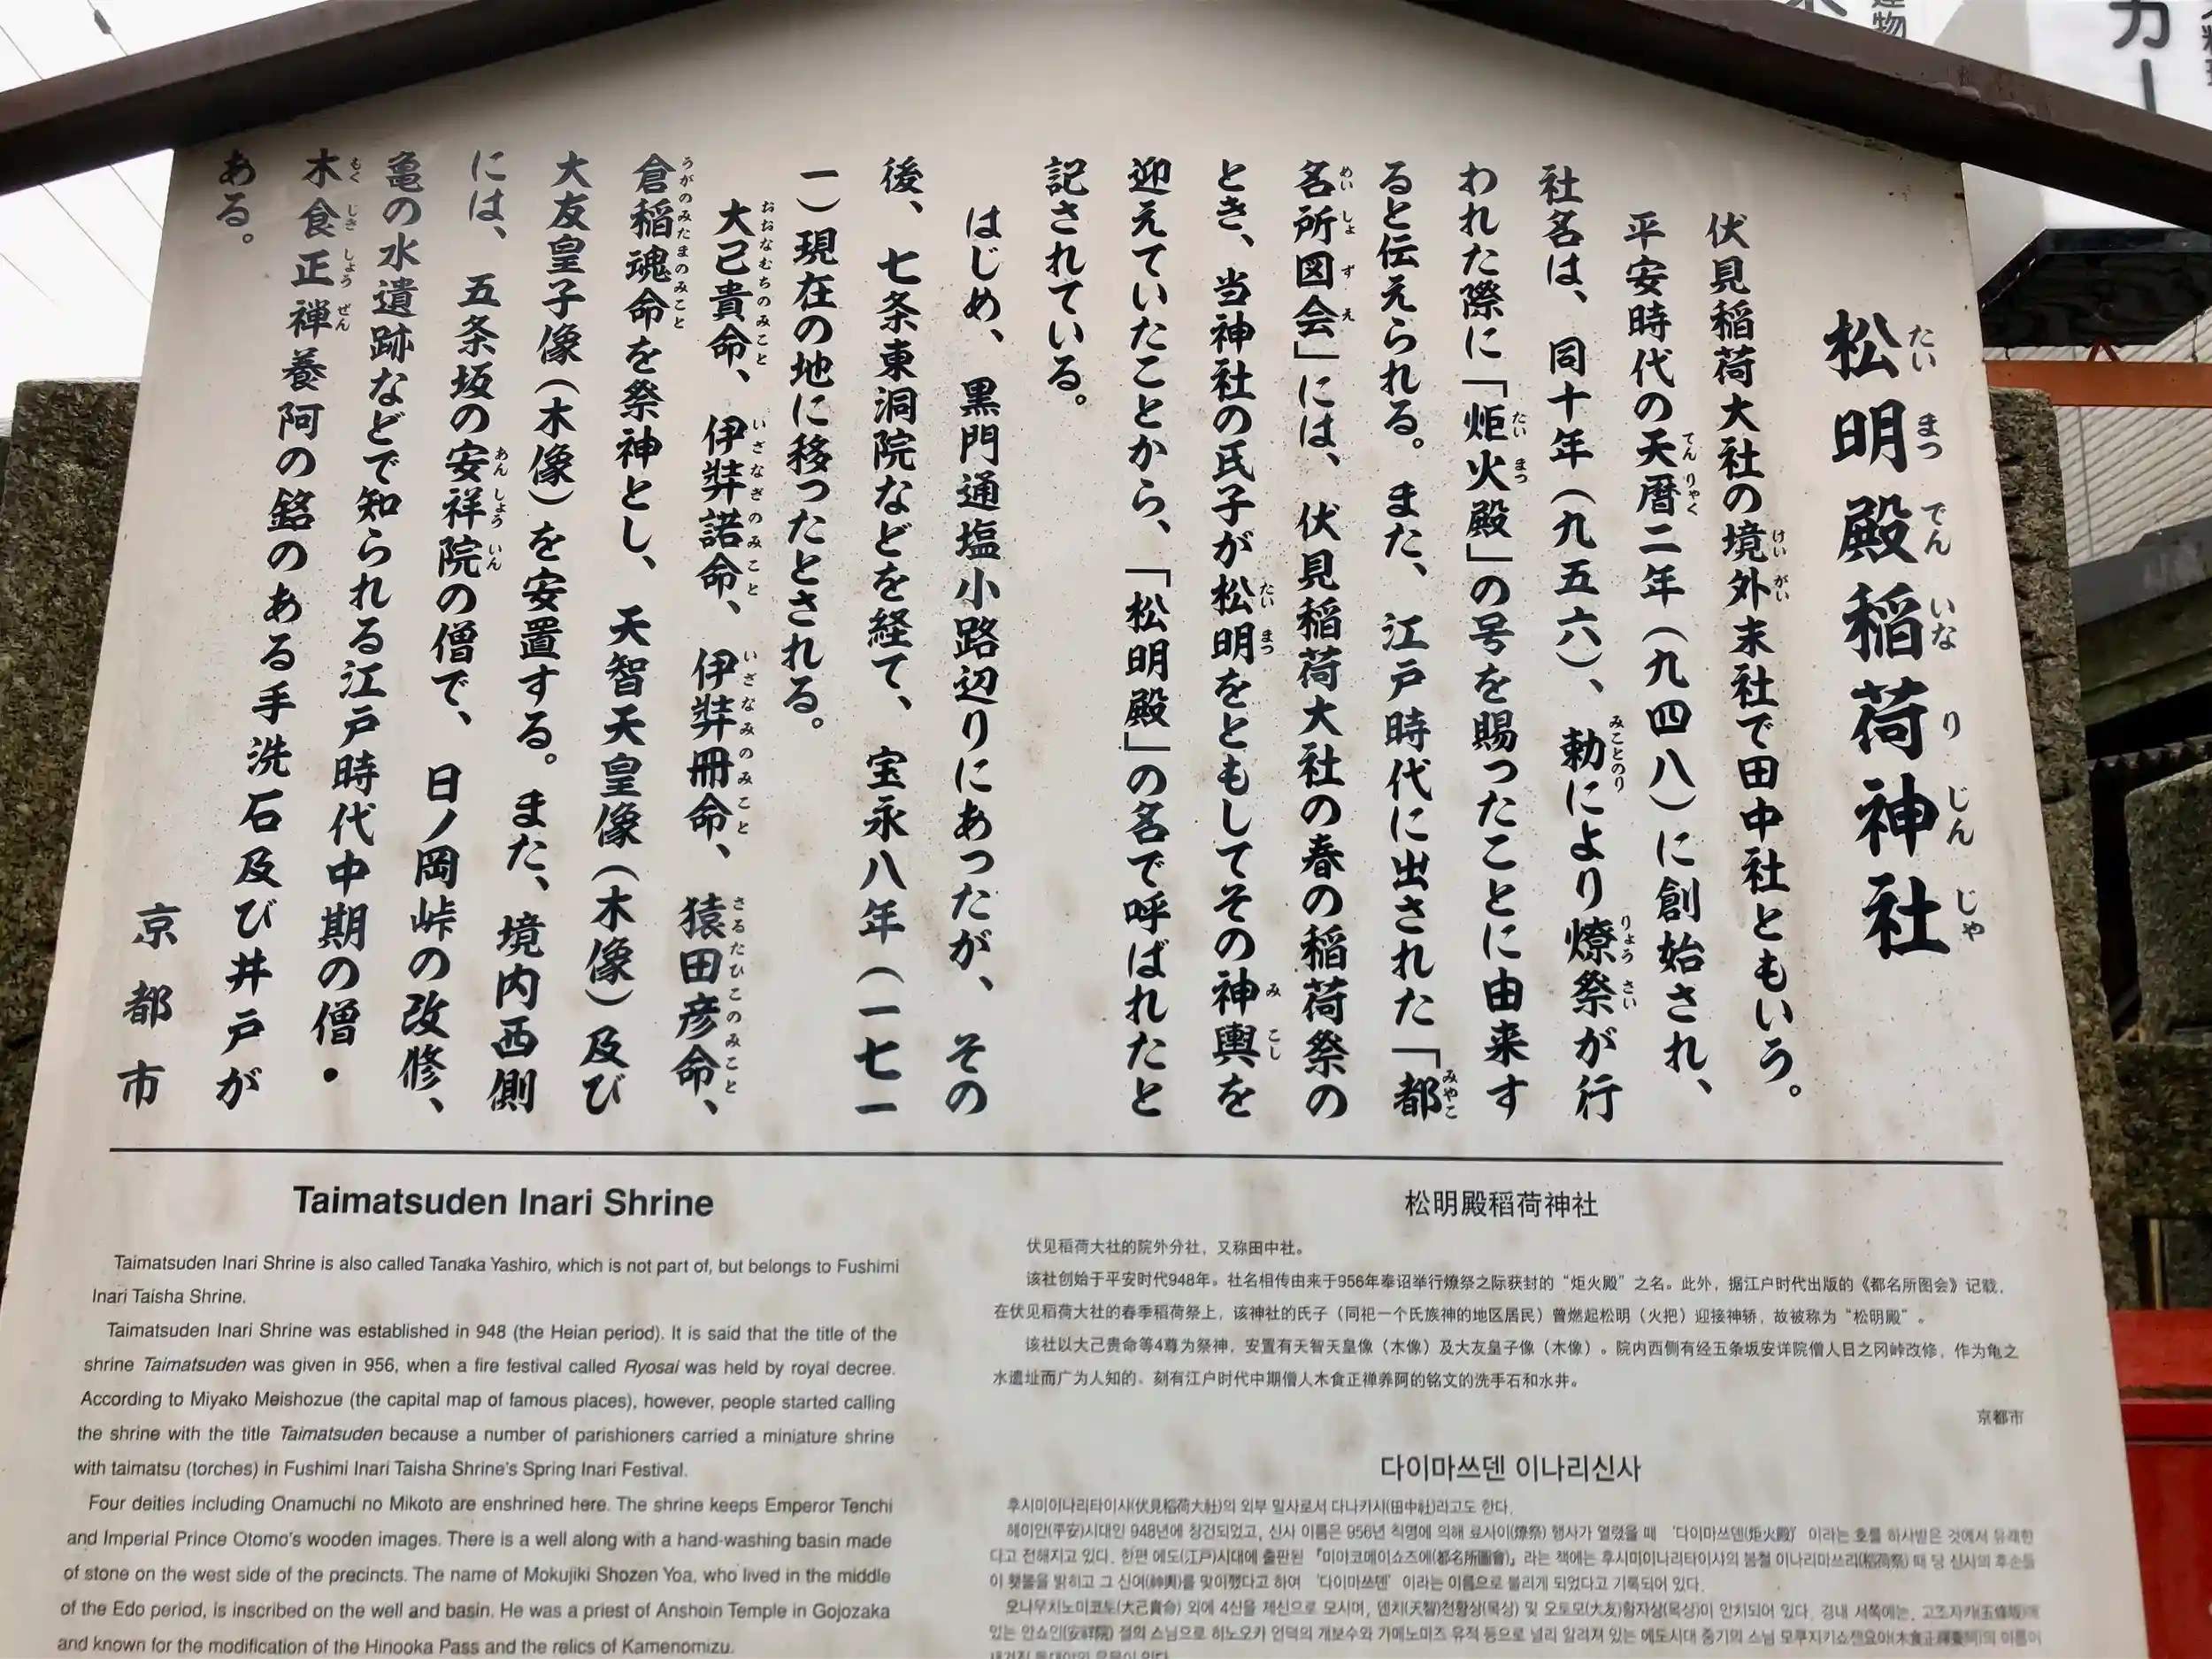 松明殿稲荷神社
たいまつでんいなりじんじゃ
伏見稲荷大社の境外末社で田中社ともいう。
けいがい
平安時代の天暦二年（九四八）に創始され、
てんりゃく
社名は、同十年（九五六）、勅により燎祭が行
みことのり りょうさい
われた際に「炬火殿」の号を賜ったことに由来す
たいまつ
ると伝えられる。また、江戸時代に出された「都
みやこ
名所図会」には、伏見稲荷大社の春の稲荷祭の
めいしょずえ
とき、当神社の氏子が松明をともしてその神輿を
たいまつ みこし
迎えていたことから、「松明殿」の名で呼ばれたと
記されている。
はじめ、黒門通塩小路辺りにあったが、その
後、七条東洞院などを経て、宝永八年（一七一
一）現在の地に移ったとされる。
大己貴命、伊弉諾命、伊弉冊命、猿田彦命、
おおなむちのみこと いざなぎのみこと いざなみのみこと さるたひこのみこと
倉稲魂命を祭神とし、天智天皇像（木像）及び
うがのみたまのみこと
大友皇子像（木像）を安置する。また、境内西側
には、五条坂の安祥院の僧で、日ノ岡峠の改修、
あんしょういん
亀の水遺跡などで知られる江戸時代中期の僧・
木食正禅養阿の銘のある手洗石及び井戸が
もくじきしょうぜん
ある。
京都市
Taimatsuden Inari Shrine
Taimatsuden Inari Shrine is also called Tanaka Yashiro, which is not part of, but belongs to Fushimi
Inari Taisha Shrine.
Taimatsuden Inari Shrine was established in 948 (the Heian period). It is said that the title of the
shrine Taimatsuden was given in 956, when a fire festival called Ryosai was held by royal decree.
According to Miyako Meishozue (the capital map of famous places), however, people started calling
the shrine with the title Taimatsuden because a number of parishioners carried a miniature shrine
with taimatsu (torches) in Fushimi Inari Taisha Shrine's Spring Inari Festival.
Four deities including Onamuchi no Mikoto are enshrined here. The shrine keeps Emperor Tenchi
and Imperial Prince Otomo's wooden images. There is a well along with a hand-washing basin made
of stone on the west side of the precincts. The name of Mokujiki Shozen Yoa, who lived in the middle
of the Edo period, is inscribed on the well and basin. He was a priest of Anshoin Temple in Gojozaka
and known for the modification of the Hinooka Pass and the relics of Kamenomizu.
松明殿稻荷神社
伏见稻荷大社的院外分社，又称田中社。
该社创始于平安时代948年。社名相传由来于956年奉诏举行燎祭之际获封的“炬火殿”之名。此外，据江户时代出版的《都名所图会》记载，
在伏见稻荷大社的春季稻荷祭上，该神社的氏子（同祀一个氏族神的地区居民）曾燃起松明（火把）迎接神轿，故被称为“松明殿”。
该社以大己贵命等4尊为祭神，安置有天智天皇像（木像）及大友皇子像（木像）。院内西侧有经五条坂安详院僧人日之冈峠改修，作为龟之
水遗址而广为人知的、刻有江户时代中期僧人木食正禅养阿的铭文的洗手石和水井。
京都市
다이마쓰덴 이나리신사
후시미이나리타이샤(伏見稲荷大社)의 외부 말사로서 다나카샤(田中社)라고도 한다.
헤이안(平安)시대인 948년에 창건되었고, 신사 이름은 956년 칙명에 의해 료사이(燎祭) 행사가 열렸을 때 ‘다이마쓰덴(炬火殿)’이라는 호를 하사받은 것에서 유래한
다고 전해지고 있다. 한편 에도(江戸)시대에 출판된 『미야코메이쇼즈에(都名所圖會)』라는 책에는 후시미이나리타이샤의 봄철 이나리마쓰리(稲荷祭) 때 당 신사의 후손들
이 횃불을 밝히고 그 신여(神輿)를 맞이했다고 하여 ‘다이마쓰덴’이라는 이름으로 불리게 되었다고 기록되어 있다.
오나무치노미코토(大己貴命) 외에 4신을 제신으로 모시며, 덴치(天智)천황상(목상) 및 오토모(大友)황자상(목상)이 안치되어 있다. 경내 서쪽에는, 고조자카(五條坂)에
있는 안쇼인(安祥院) 절의 스님으로 히노오카 언덕의 개보수와 가메노미즈 유적 등으로 널리 알려져 있는 에도시대 중기의 스님 모쿠지키쇼젠요아(木食正禪養阿)의 이름이
建物
カー